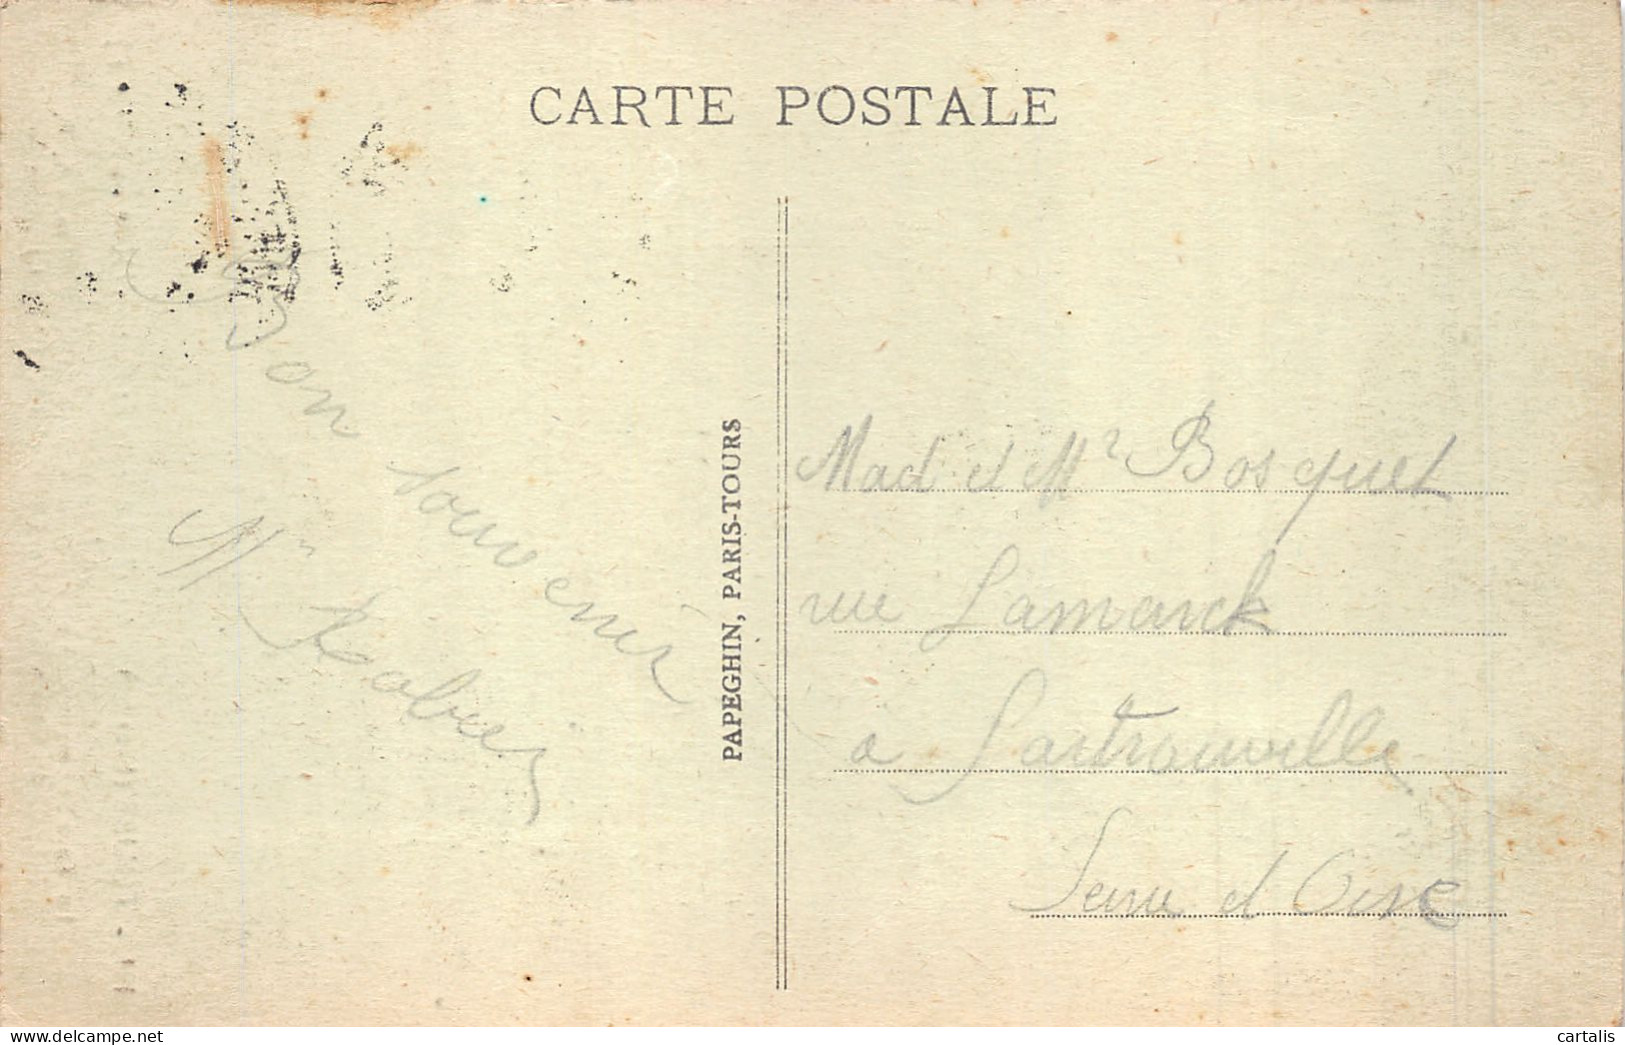 CARTE POSTALE
Bon souvenir
PAPEGHIN, PARIS-TOURS
Mad et Mr Bosquet
rue Lamarck
a Sartrouville
Seine et Oise
cartalis